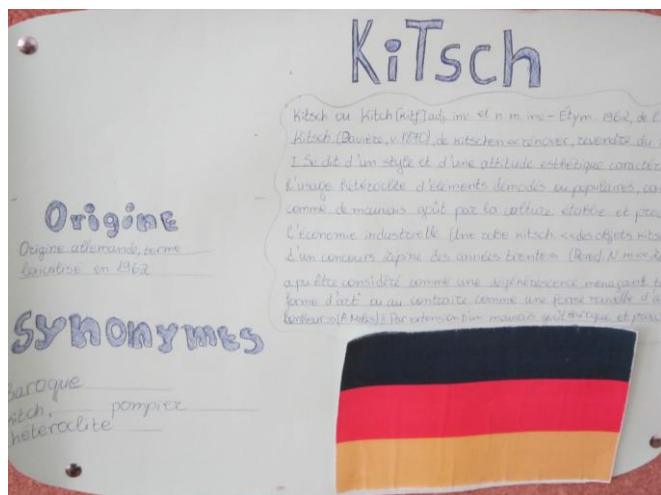 KiTsch
Kitsch ou Kitch [kitʃ] adj. inv. et n. m. inv - Étym. 1962, de l'
Kitsch (Bavière, v. 1870), de kitschen « rénover, revendre du
I Se dit d'un style et d'une attitude esthétique caractér
l'usage hétéroclite d'éléments démodés ou populaires, con
comme de mauvais goût par la culture établie et pro
l'économie industrielle Une robe kitsch « des objets kits
d'un concours des années trente » (Pered). N. m. «
a pu être considéré comme une dégénérescence menaçant t
forme d'art ou au contraire comme une forme nouvelle d'a
bonheur » (A Moles) Par extension D'un mauvais goût et
Origine
Origine allemande, terme
en 1962
SYNONYMES
baroque
kitch, pompier
hétéroclite